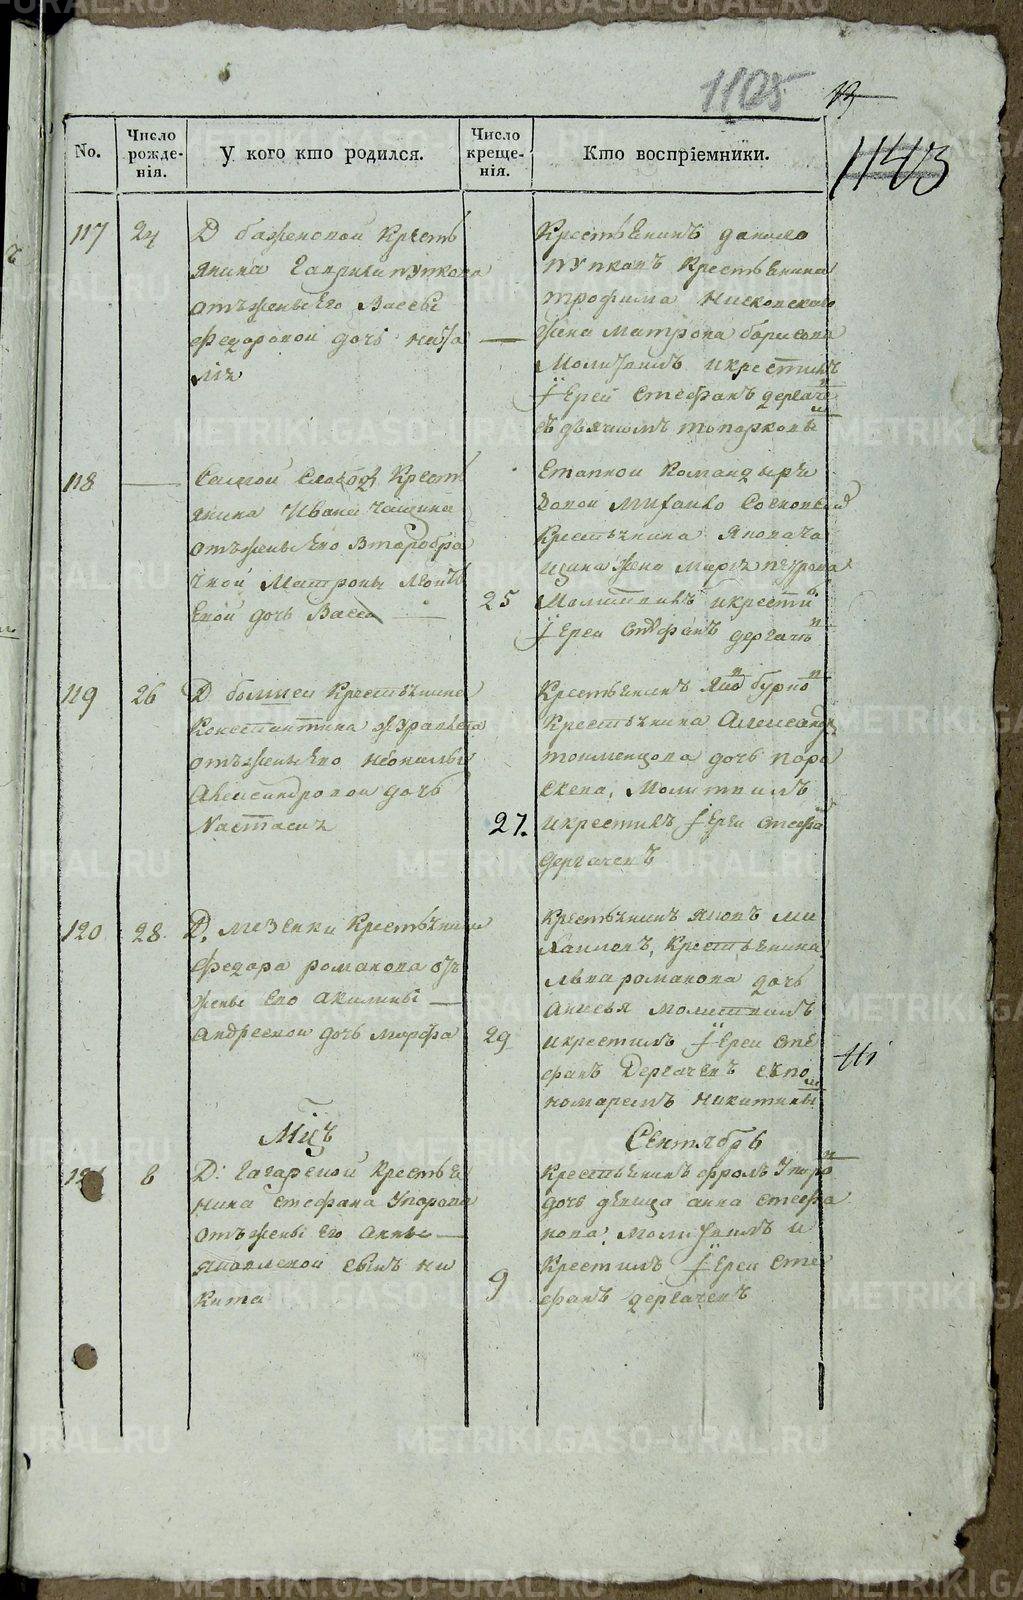 1105
1143
No.
Число рожденія.
У кого кто родился.
Число крещенія.
Кто воспріемники.
117
24
Д баженовой Кресть
янина Гаврила пупкова
отъ жены Его Вассы
Федоровой дочь ната
лiя
Крестьянинъ данило
пупковъ Крестьянина
трофима
жена матрона борисова
Молитвилъ и крестилъ
Iерей Стефанъ дергаче
съ дьячкомъ топорковы
118
самой слободы Кресть
янина Ивана чащина
отъ жены Его Второбра
чной Матроны Леонть
евой дочь Васса
25
Етапной Командыръ
Михайло
Крестьянина Якова ча
щина жена марья петрова
Молитвилъ и крести
Iерей Стефанъ дергаче
119
26
Д Крестьянина
Константина журавлева
отъ жены Его неонилы
Александровой дочь
Настасья
27.
Крестьянинъ
Крестьянина Александр
дочь пора
скева, Молитвилъ
и крестилъ Iерей Стефа
дергачевъ
120
28
Д. мезенки Крестьянина
Федора романова отъ
жены Его Акилины
Андреевой дочь марфа
29
Крестьянинъ Яковъ ми
хайловъ, Крестьянина
льва романова дочь
анисья молитвилъ
и крестилъ Iерей Сте
фанъ Дергачевъ съ по
номаремъ никитины
Мцъ
Сентябрь
121
8
Д: Гагарской Кресть
янина Стефана Упорова
отъ жены Его Анны
Яковлевой сынъ ни
кита
9
Крестьянинъ фролъ Упоро
дочь девица анна стефа
нова, молитвилъ и
Крестилъ Iерей Сте
фанъ дергачевъ
METRIKI.GASO-URAL.RU